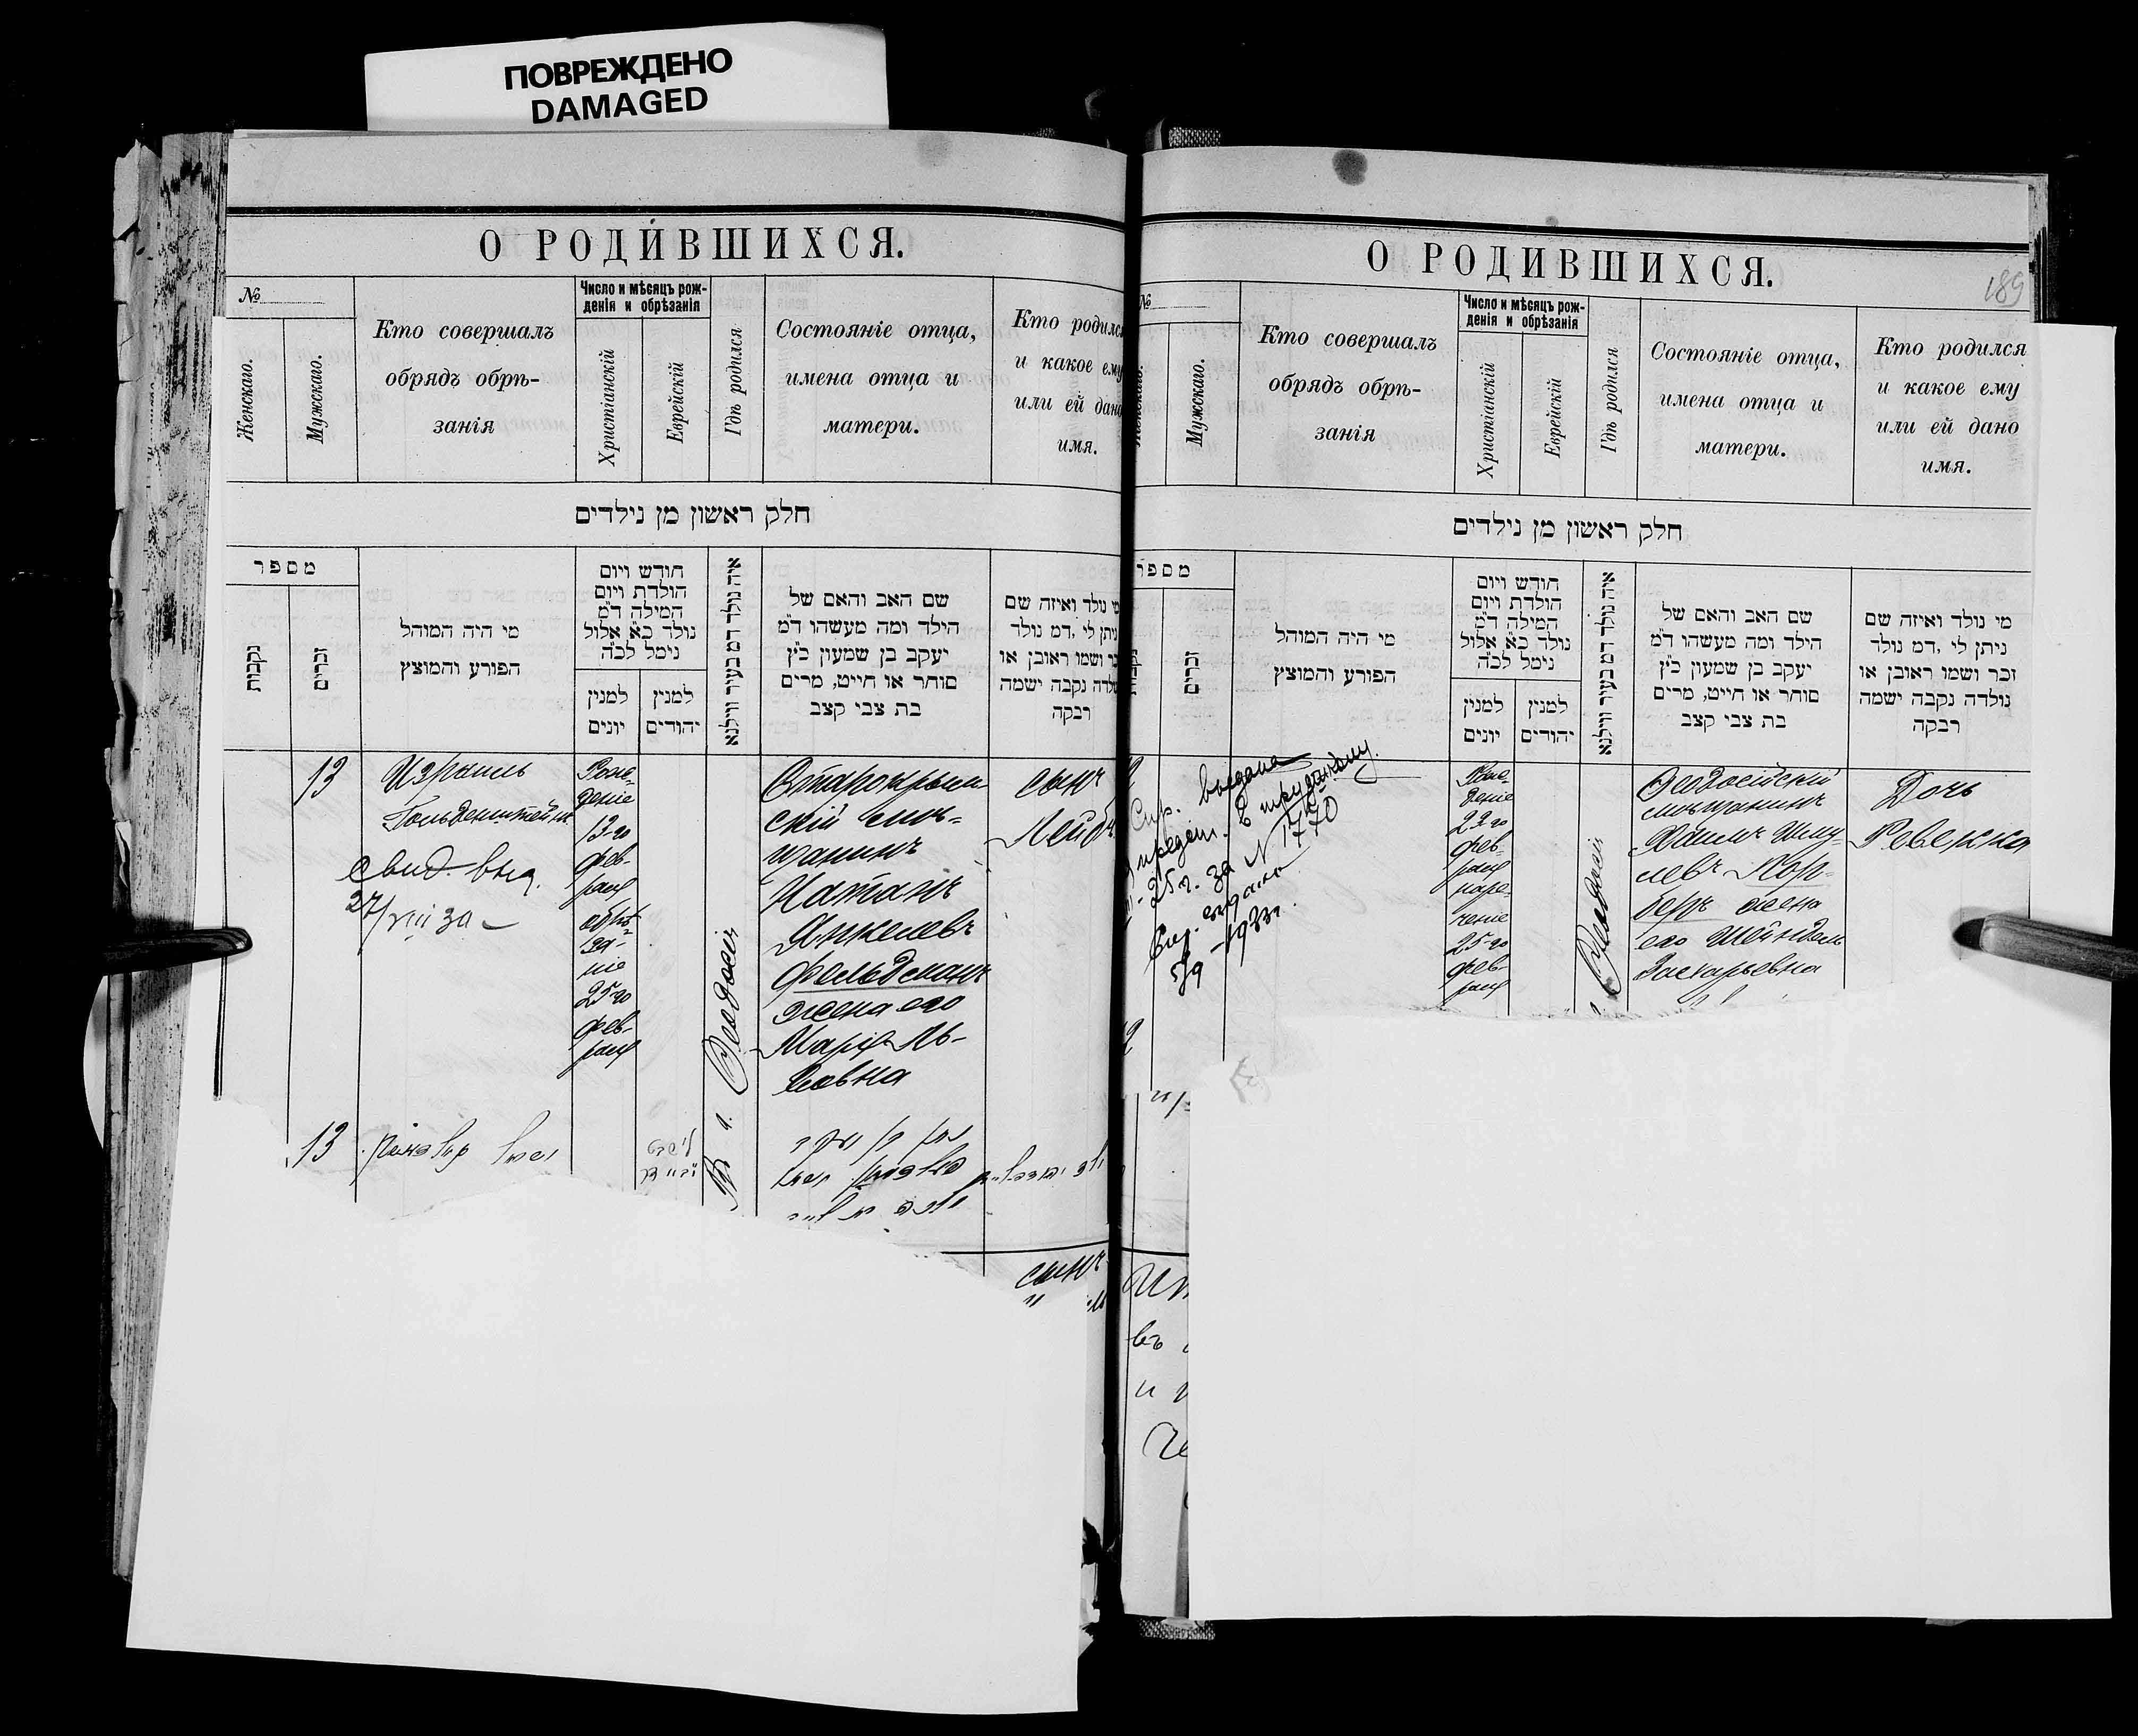 ПОВРЕЖДЕНО
DAMAGED
О РОДИВШИХСЯ.
№
Женскаго.
Мужскаго.
Кто совершалъ
обрядъ обрѣ-
занія
Число и мѣсяцъ рож-
денія и обрѣзанія
Христіанскій
Еврейскій
Гдѣ родился
Состояніе отца,
имена отца и
матери.
Кто родился
и какое ему
или ей дано
имя.
חלק ראשון מן נילדים
מספר
נקבות
זכרים
מי היה המוהל
הפורע והמוצץ
חודש ויום
הולדת ויום
המילה ד״מ
נולד כ״א אלול
נימל לכ״ה
למנין
יונים
למנין
יהודים
איה נולד דמ בעיר ווילנא
שם האב והאם של
הילד ומה מעשהו ד״מ
יעקב בן שמעון כ״ץ
סוחר או חייט, מרים
בת צבי קצב
נולד ואיזה שם
ניתן לי ,דמ נולד
ושמו ראובן או
נקבה ישמה
רבקה
13
Израиль
Гольденштейнъ
свид. выд.
27/VIII 30
Рож-
деніе
13-го
фев-
раля
обрѣ-
за-
ніе
25-го
фев-
раля
В г. Ѳеодосіи
Старокрым-
скій мѣ-
щанинъ
Натанъ
Янкелевъ
Фельдманъ
жена его
Марія Ль-
вовна
сынъ
Лейбъ
13
сынъ
О РОДИВШИХСЯ.
189
№
Женскаго.
Мужскаго.
Кто совершалъ
обрядъ обрѣ-
занія
Число и мѣсяцъ рож-
денія и обрѣзанія
Христіанскій
Еврейскій
Гдѣ родился
Состояніе отца,
имена отца и
матери.
Кто родился
и какое ему
или ей дано
имя.
חלק ראשון מן נילדים
מספר
נקבות
זכרים
מי היה המוהל
הפורע והמוצץ
חודש ויום
הולדת ויום
המילה ד״מ
נולד כ״א אלול
נימל לכ״ה
למנין
יונים
למנין
יהודים
איה נולד דמ בעיר ווילנא
שם האב והאם של
הילד ומה מעשהו ד״מ
יעקב בן שמעון כ״ץ
סוחר או חייט, מרים
בת צבי קצב
מי נולד ואיזה שם
ניתן לי ,דמ נולד
זכר ושמו ראובן או
נולדה נקבה ישמה
רבקה
Спр. выдана
25 г. за N 1770
Спр. выдана
1933 г.
Рож-
деніе
22-го
фев-
раля
наре-
ченіе
25-го
фев-
раля
Ѳеодосіи
Ѳеодосійскій
мѣщанинъ
Хаимъ Шму-
левъ Кор-
беръ жена
его Шейндель
Захарьевна
Дочь
Ревекка